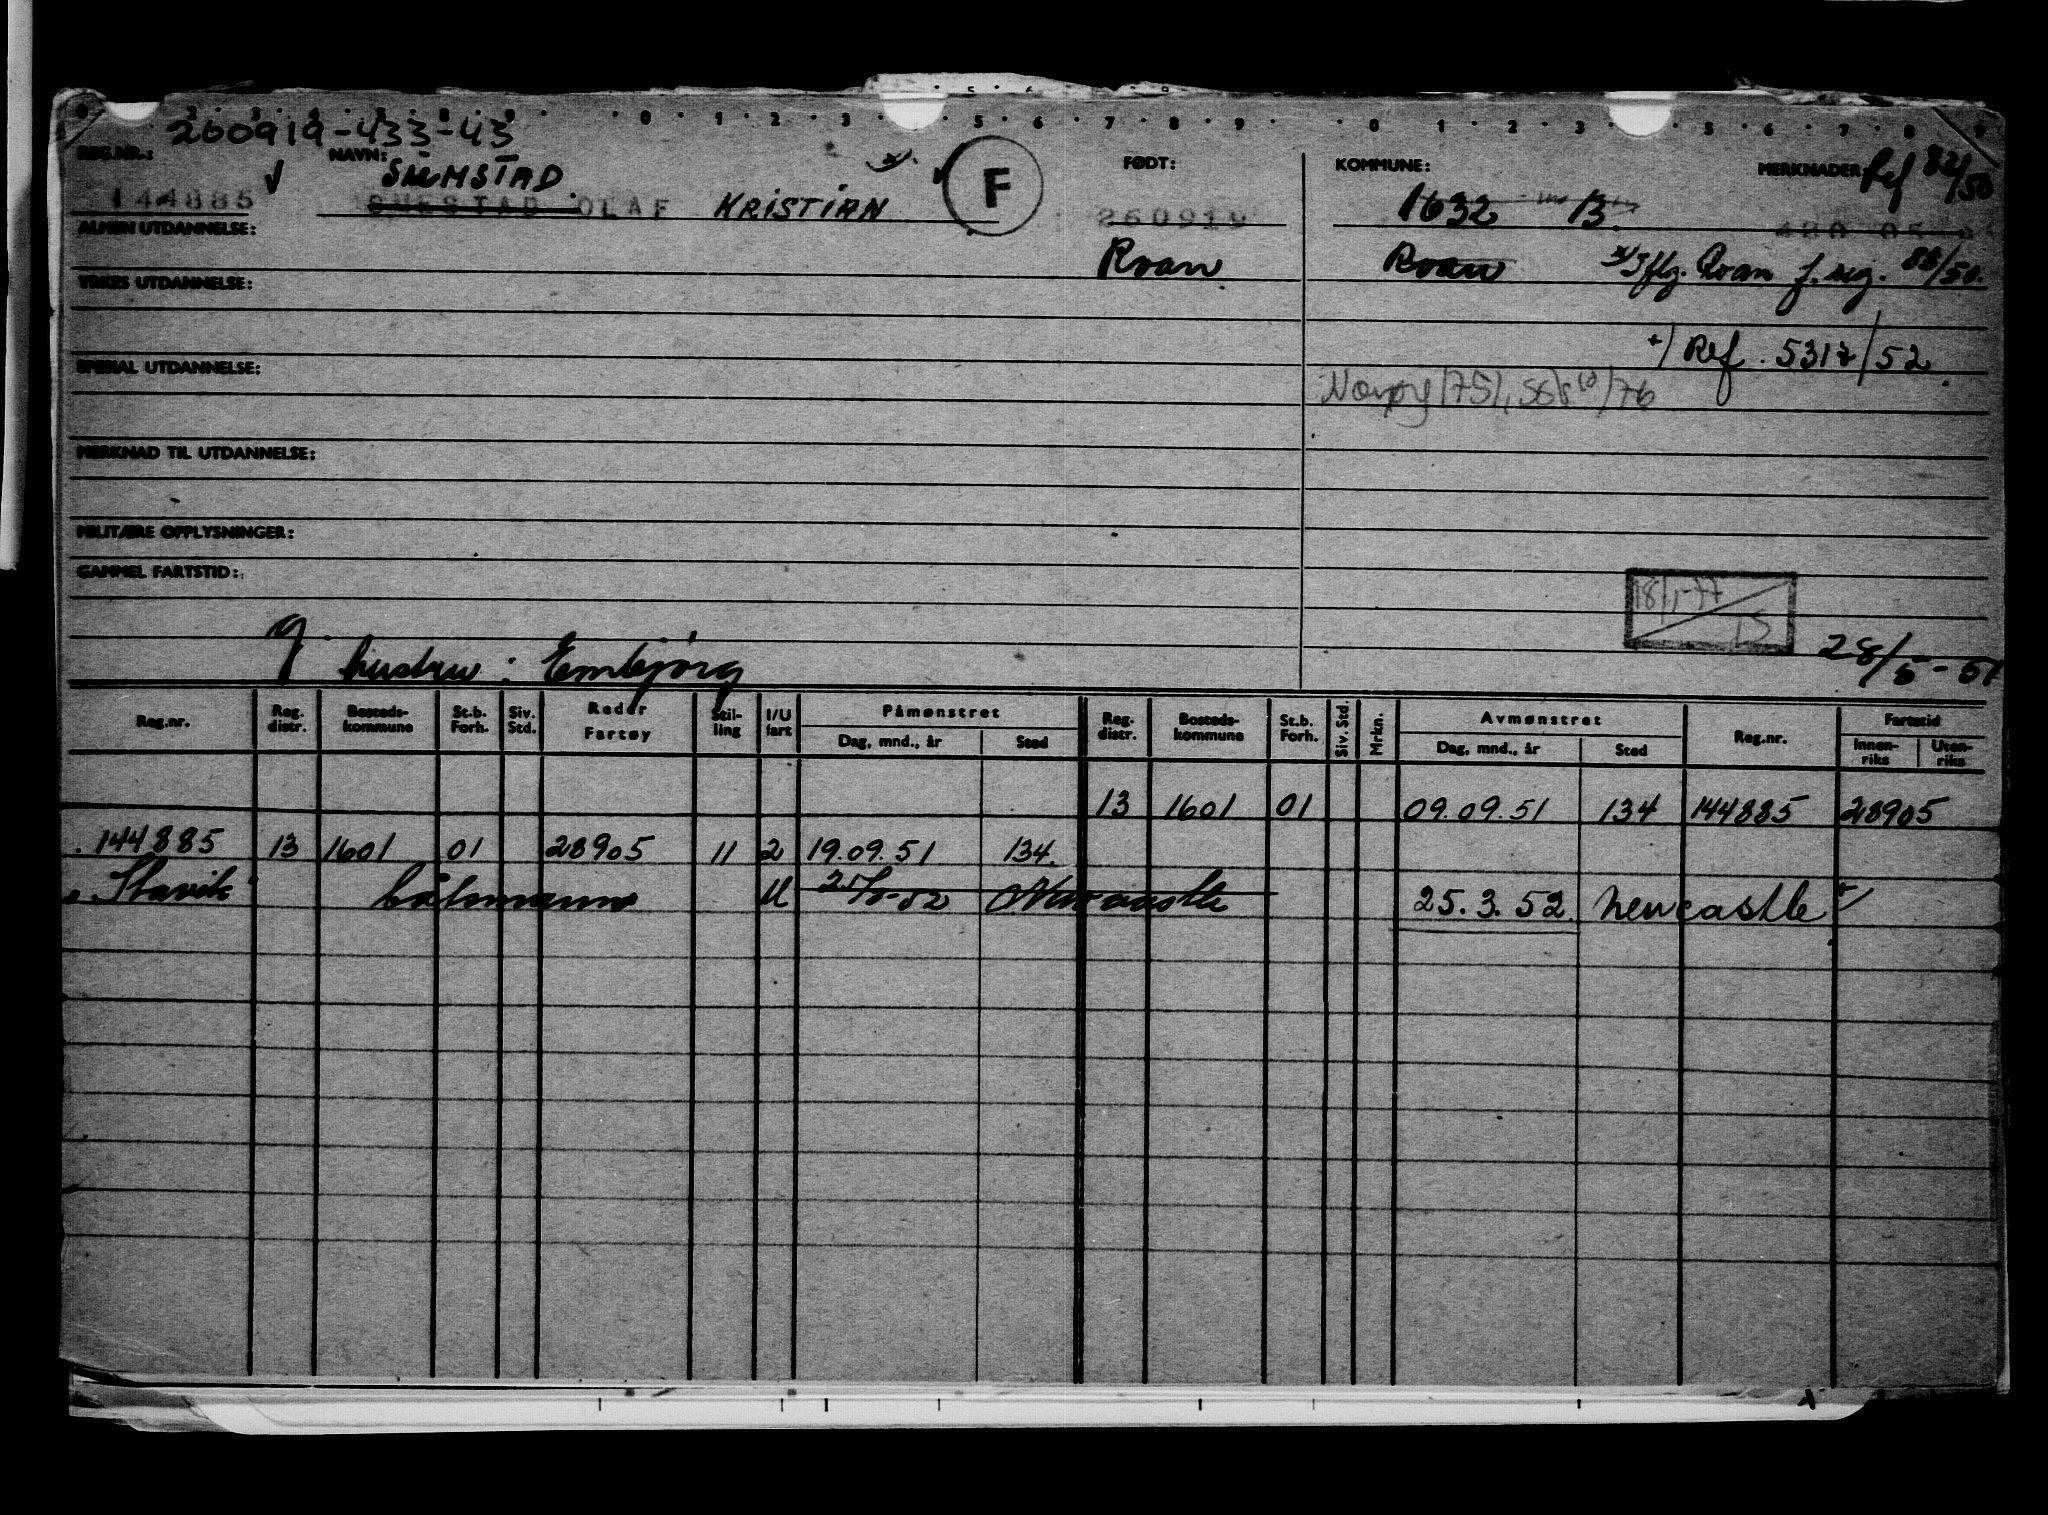 260919-433-43
REG.NR.: NAVN: FØDT: KOMMUNE: MERKNADER: Ref 82/50
SUMSTAD
144885 OLAF KRISTIAN F 260919 1632 13
ALMEN UTDANNELSE: Roan Roan Iflg. Roan f.reg. 86/50.
YRKES UTDANNELSE:
+) Ref. 5317/52.
SPESIAL UTDANNELSE:
MERKNAD TIL UTDANNELSE:
MILITÆRE OPPLYSNINGER:
GAMMEL FARTSTID:
18/1-77
15
28/5-51
g. hustru: Embjørg
Reg.nr. Reg. distr. Bosteds-kommune St.b. Forh. Siv. Std. Reder Fartøy Stil-ling I/U fart Påmønstret Dag, mnd., år Sted Reg. distr. Bosteds-kommune St.b. Forh. Siv. Std. Mrkn. Avmønstret Dag, mnd., år Sted Reg.nr. Fartstid Innen-riks Uten-riks
13 1601 01 09.09.51 134 144885 28905
144885 13 1601 01 28905 11 2 19.09.51 134.
Stavik båtsmann U 25/3-52 Newcastle 25.3.52 Newcastle +